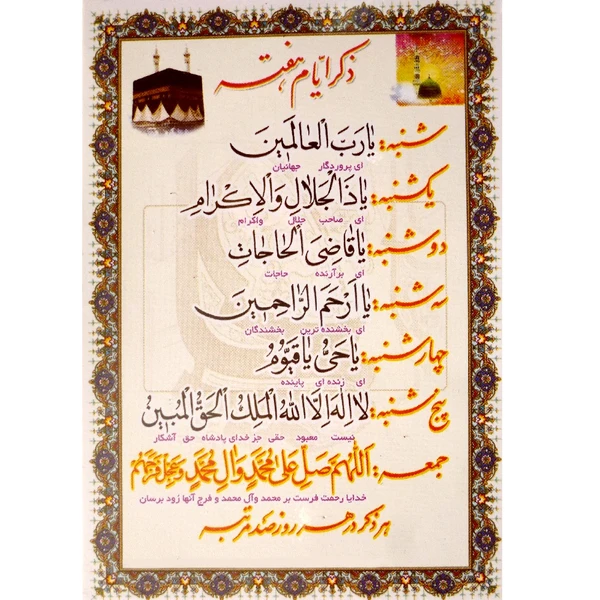 ذکر ایّام هفته
شنبه: یا رَبَّ الْعالَمین
ای پروردگار جهانیان
یکشنبه: یا ذَالْجَلالِ وَالْاِکْرام
ای صاحب جلال واکرام
دوشنبه: یا قاضِیَ الْحاجات
ای برآرنده حاجات
سه شنبه: یا اَرْحَمَ الرّاحِمین
ای بخشنده ترین بخشندگان
چهارشنبه: یا حَیُّ یا قَیّوُمُ
ای زنده ای پاینده
پنج شنبه: لا اِلهَ اِلَّا اللهُ الْمَلِکُ الْحَقُّ الْمُبین
نیست معبود حقی جز خدای پادشاه حق آشکار
جمعه: اَللّهُمَّ صَلِّ عَلی مُحَمَّدٍ وَآلِ مُحَمَّدٍ وَعَجِّلْ فَرَجَهُمْ
خدایا رحمت فرست بر محمد وآل محمد و فرج آنها زود برسان
هر ذکر در هر روز صد مرتبه